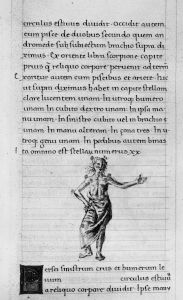 circulus estiuus diuidit. Occidit autem
cum pisce de duobus secundo quem an
dromede sub sinistrum brachio supra di
ximus. Exoriens libra scorpione capit
prius & reliquo corpore peruenit ad terram
exoritur autem cum piscibus et ariete. hic
ut supra diximus habet in capite stellam
clare lucentem unam. In utroq; humero
unam. In cubito dextro unam. In ipsa ma
nu unam. In sinistro cubito uel in brachio
unam. In manu alteram. In zona tres. In u
troq; genu unam. In pedibus autem binas
ita omnino est stellarum numerus xx
erseo sinistrum crus et humerum le
uum circulus estiuus
a reliquo corpore diuidit. Ipse manu